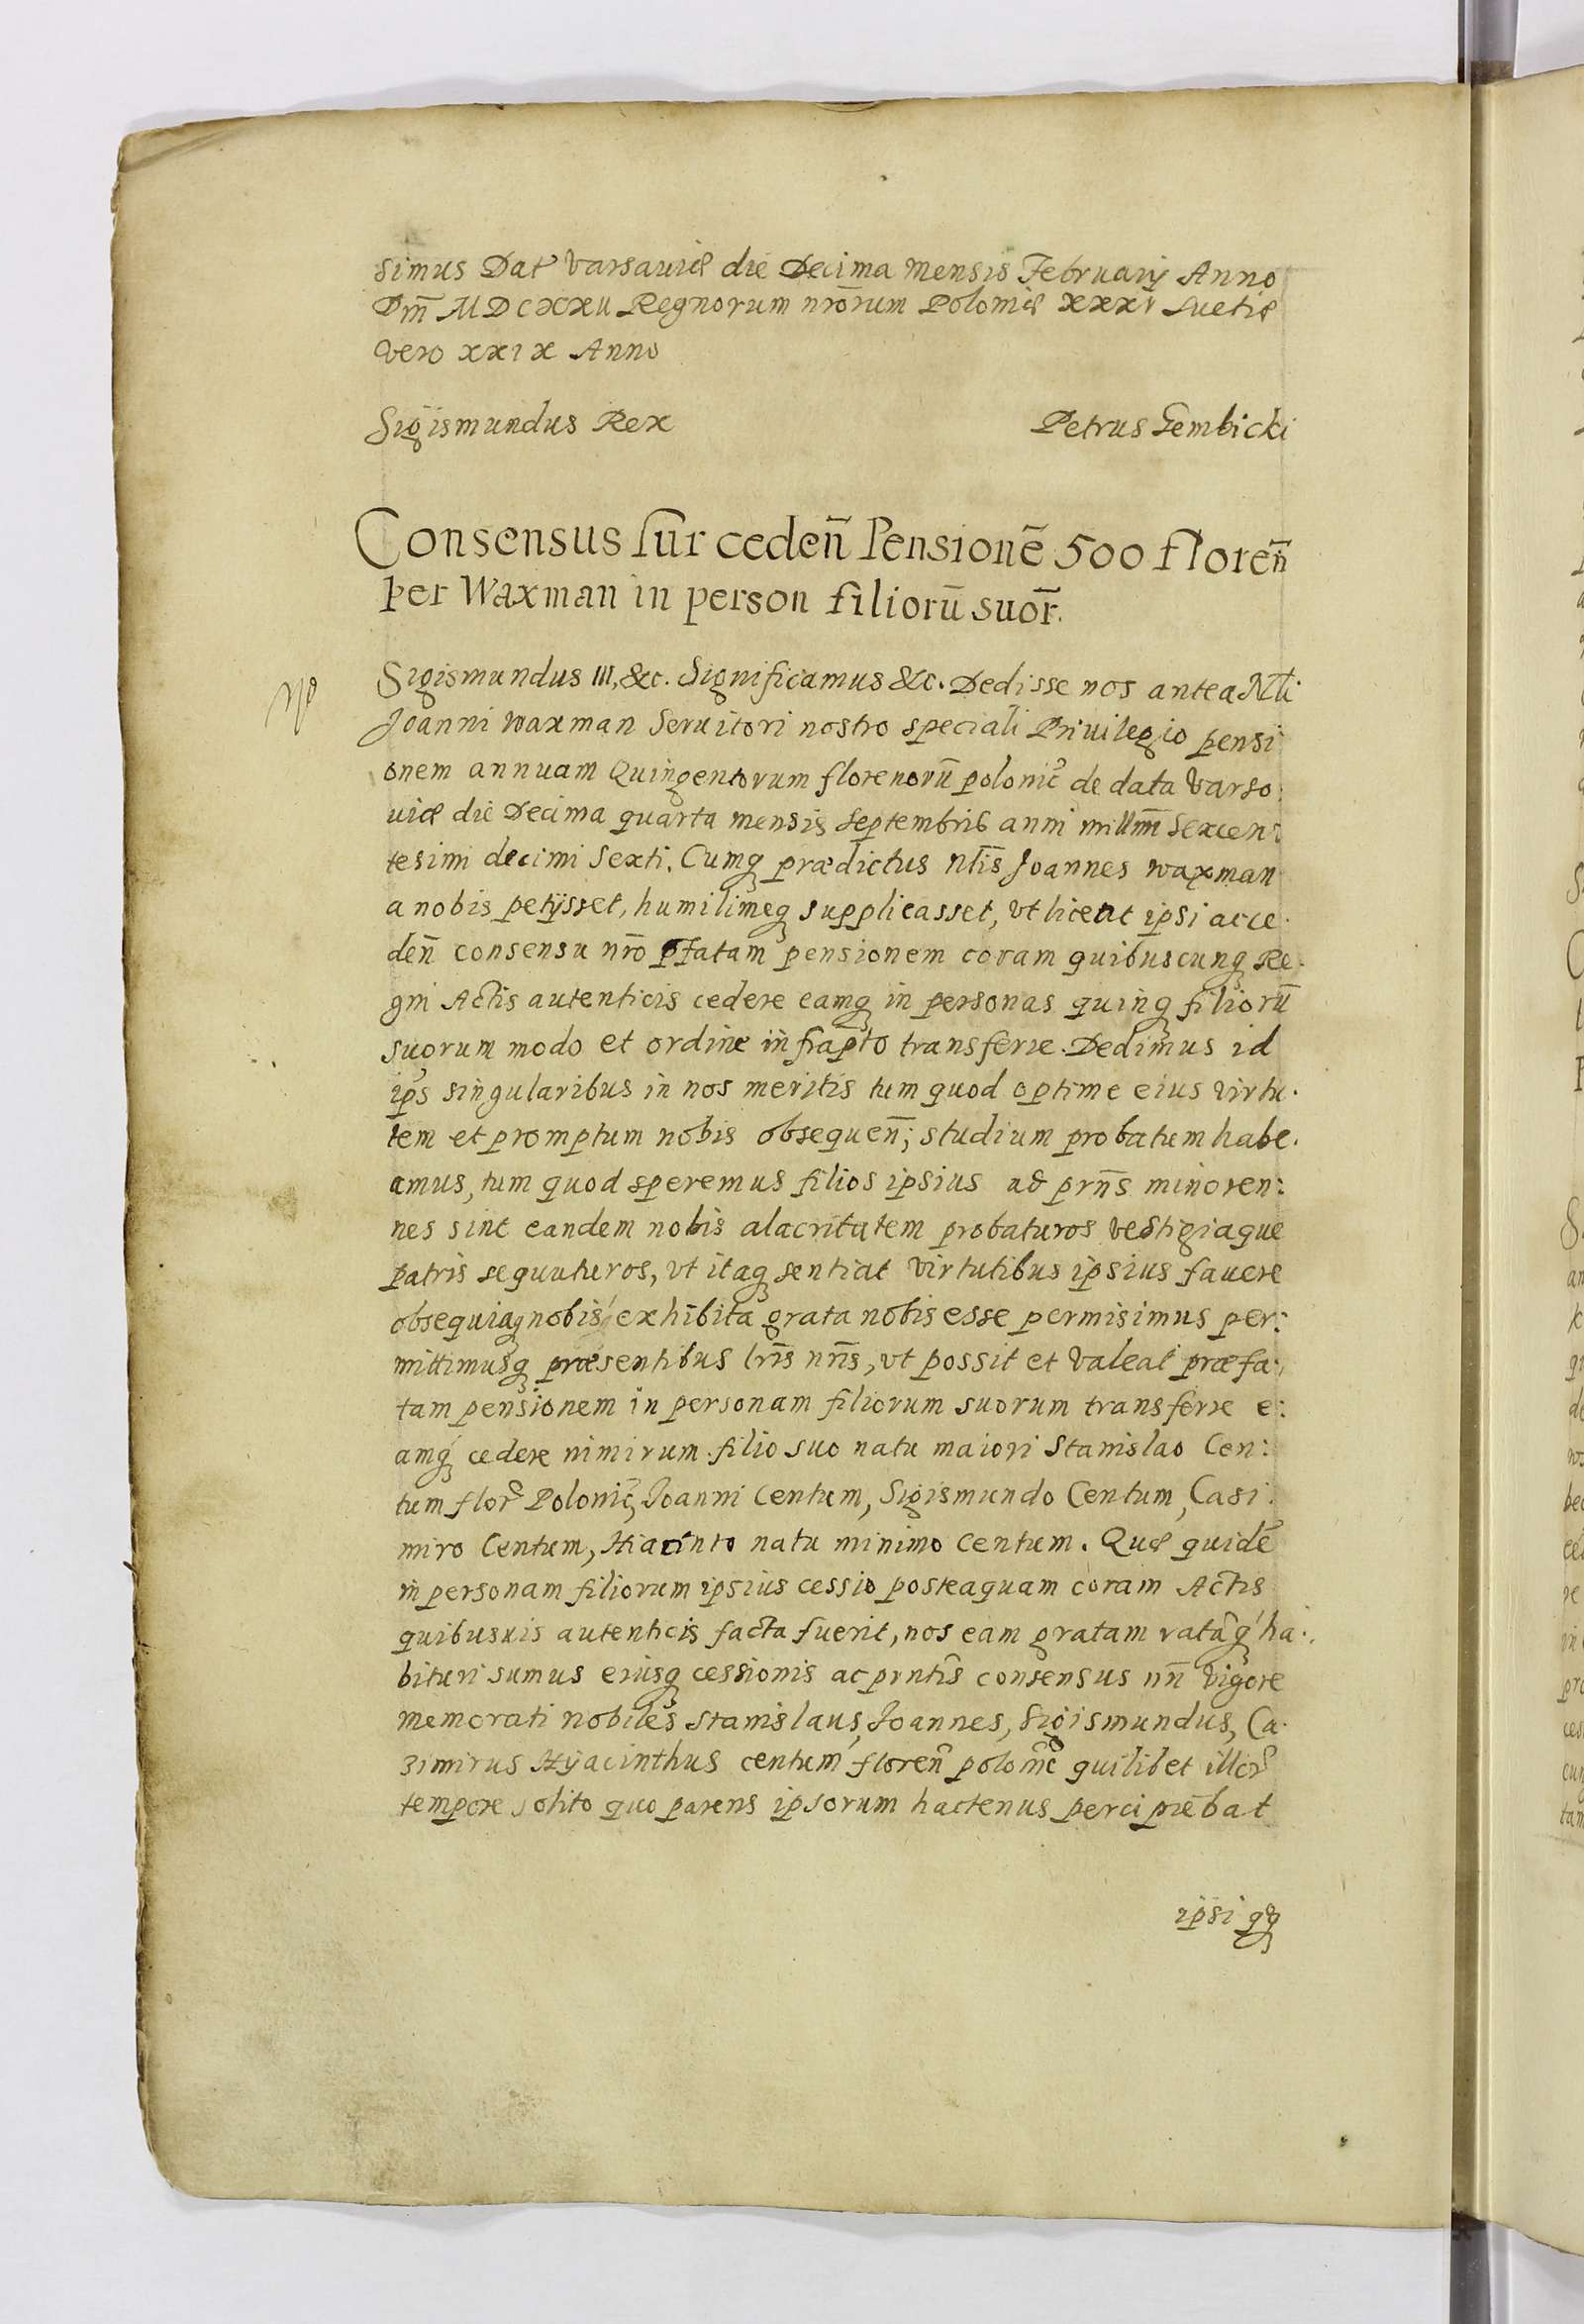 simus Dat Varsauiæ die Decima mensis Februarij Anno
Dnī MDCXXII Regnorum nrōrum Poloniæ xxxv Suetiæ
vero xxix Anno
Sigismundus Rex Petrus Gembicki
Consensus sur cedeñ Pensionē 500 floreñ
per Waxman in person filiorū suor̄.
Sigismundus III, &c. Significamus &c. Dedisse nos antea Nlī
Joanni waxman Seruitori nostro speciali Priuilegio pensi
onem annuam Quingentorum florenorū polonic de data Varso:
uiæ die Decima quarta mensis Septembris anni millm̄ Sexcen:
tesimi decimi Sexti. Cumq prædictus nlīs Joannes waxman
a nobis petijsset, humilimeq supplicasset, vt liceat ipsi acce.
deñ consensu nrō pfatam pensionem coram quibuscunq Re.
gni Actis autenticis cedere eamq in personas quinq filiorū
suorum modo et ordine infrapto transferre. Dedimus id
ips singularibus in nos meritis tum quod optime eius virtu.
tem et promptum nobis obsequeñ; studium probatum habe.
amus, tum quod speremus filios ipsius ad prn̄s minoren:
nes sint eandem nobis alacritatem probaturos vestigiaque
patris sequuturos, vt itaq sentiat virtutibus ipsius fauere
obsequiaq nobis exhibita grata nobis esse permisimus per:
mittimusq præsentibus lrīs nrīs, vt possit et valeat præfa:
tam pensionem in personam filiorum suorum transferre e:
amq cedere nimirum filio suo natu maiori Stanislao Cen:
tum flor Polonic, Joanni Centum, Sigismundo Centum, Casi:
miro Centum, Hiacinto natu minimo Centum. Quæ quidē
in personam filiorum ipsius cessio posteaquam coram Actis
quibusuis autenticis facta fuerit, nos eam gratam ratāq ha.
bituri sumus eiusq cessionis ac prntīs consensus nrī vigore
memorati nobiles Stanislaus, Joannes, Sigismundus, Ca.
zimirus Hyacinthus centum floreñ polonic quilibet illor
tempore solito quo parens ipsorum hactenus percipiebat
ipsi qq